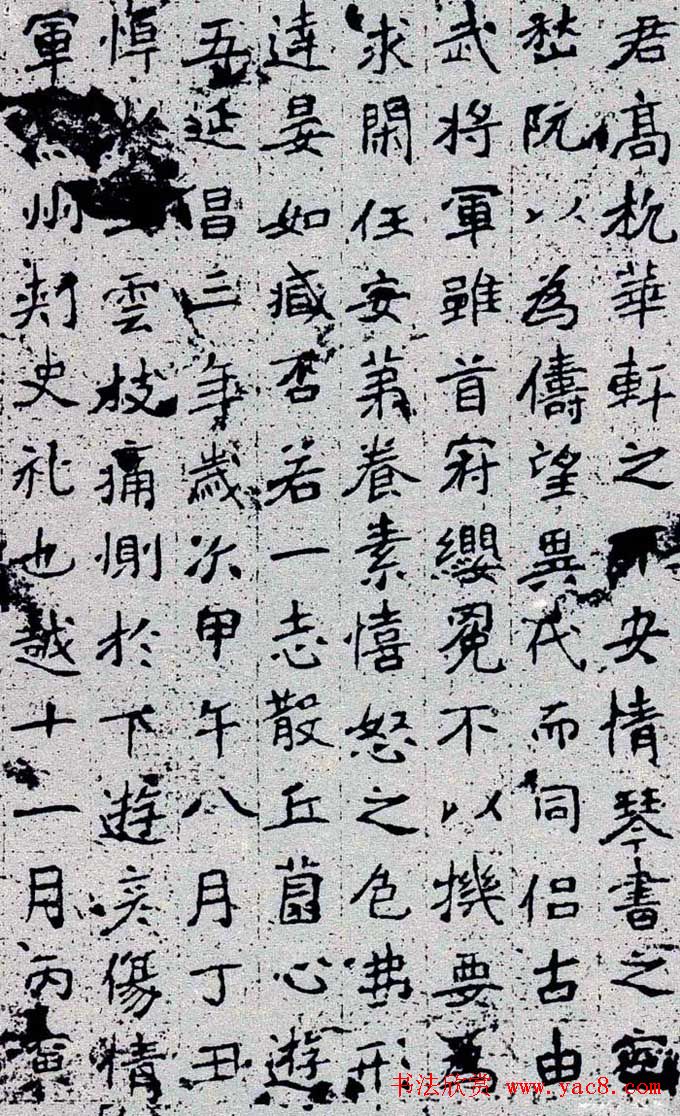 君高杭華軒之安情琴書之
嵇阮以為儔望異代而同侶古由
武將軍雖首冠纓冕不以機要為
求閑任安苐養素憘怒之色弗形
達晏如臧否若一志散丘薗心遊
吾延昌三年歲次甲午八月丁丑
悼雲枝痛惻於下遊哀傷情
軍州刾史礼也越十一月丙
书法欣赏 www.yac8.com